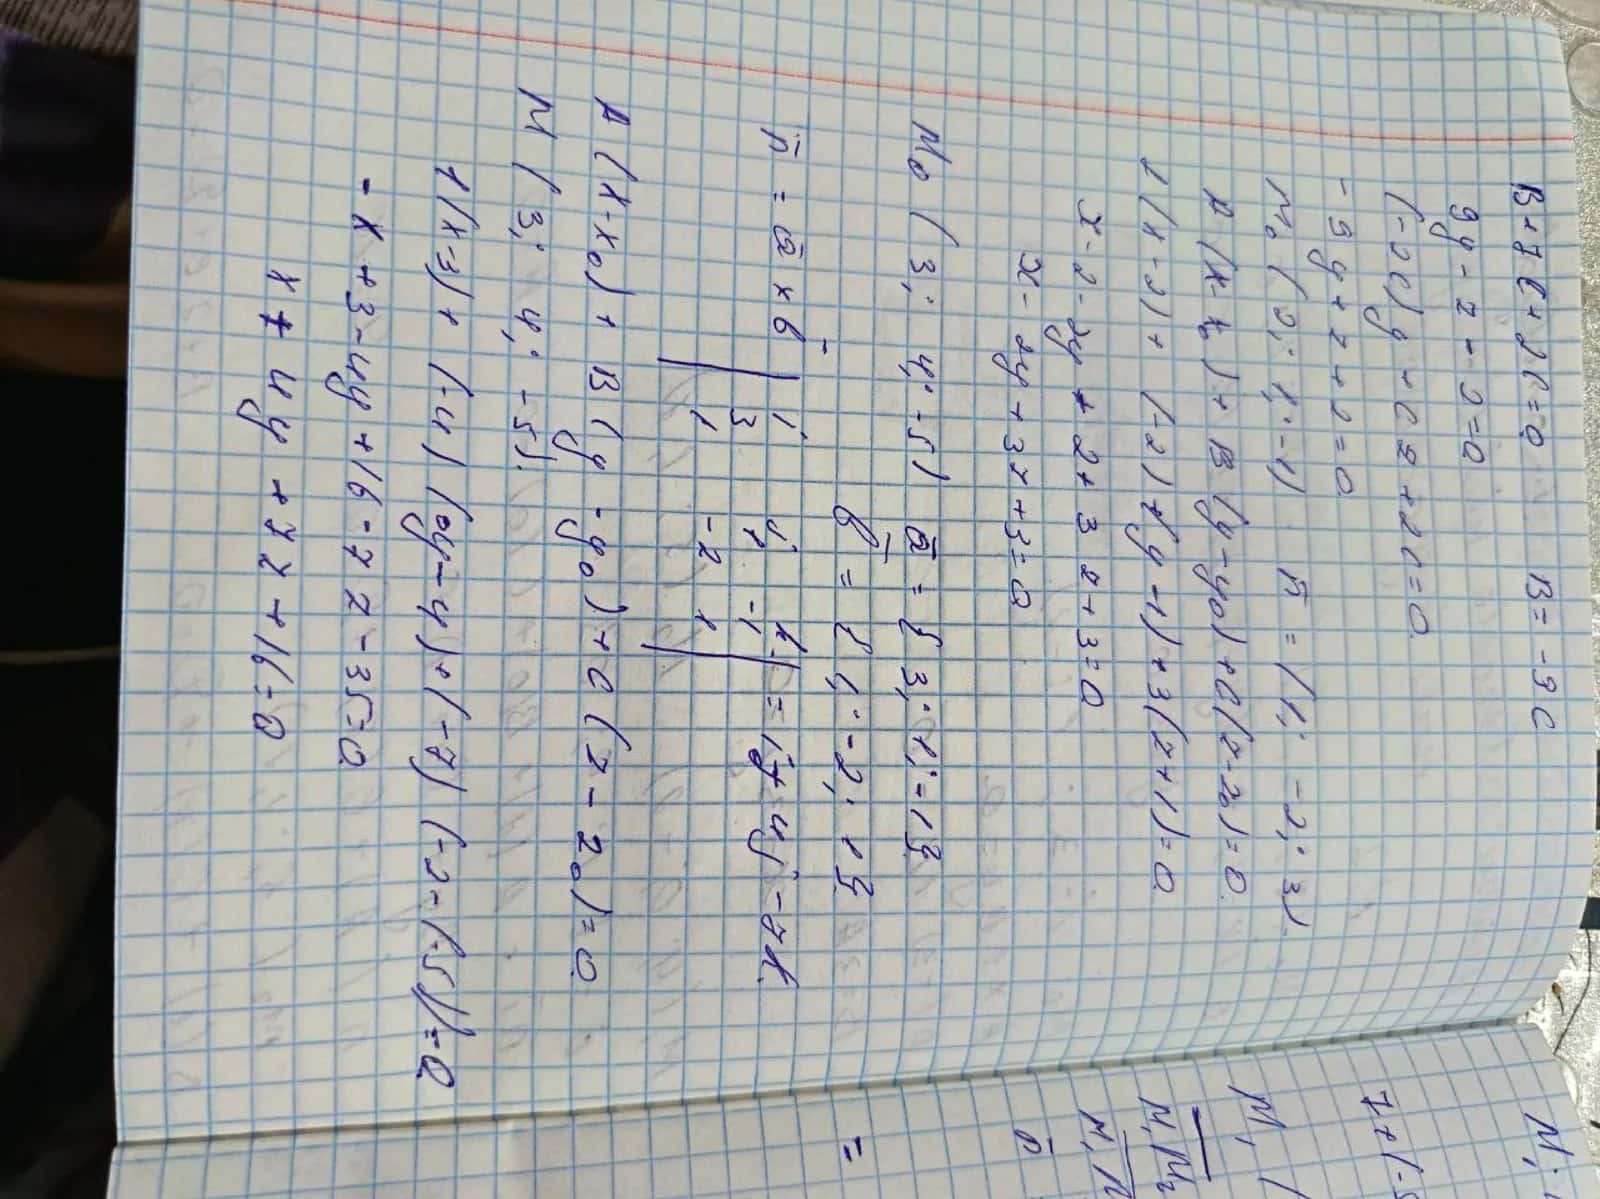 B+7C+2C=0 B=-9C
9y-z-2=0
(-9C)y+Cz+2C=0
-9y+z+2=0
M₀(2; 1; -1) n̄=(1; -2; 3)
A(x-x₀)+B(y-y₀)+C(z-z₀)=0
1(x-2)+(-2)(y-1)+3(z+1)=0
x-2-2y+2+3z+3=0
x-2y+3z+3=0
M₀(3; 4; -5) ā={3; 1; -1}
b̄={1; -2; 1}
n̄=ā×b̄ | i j k | = -i-4j-7k
3 1 -1
1 -2 1
A(x-x₀)+B(y-y₀)+C(z-z₀)=0
M(3; 4; -5).
1(x-3)+(-4)(y-4)+(-7)(-2-(-5))=0
-x+3-4y+16-7z-35=0
x+4y+7z+16=0
M₁
M₁(
M₁M₂
=